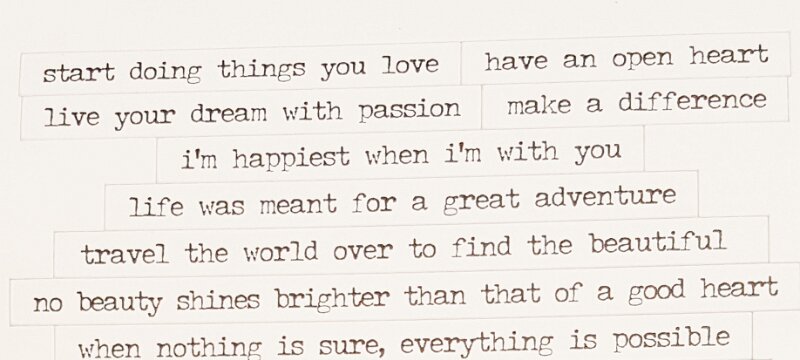 start doing things you love have an open heart
live your dream with passion make a difference
i'm happiest when i'm with you
life was meant for a great adventure
travel the world over to find the beautiful
no beauty shines brighter than that of a good heart
when nothing is sure, everything is possible